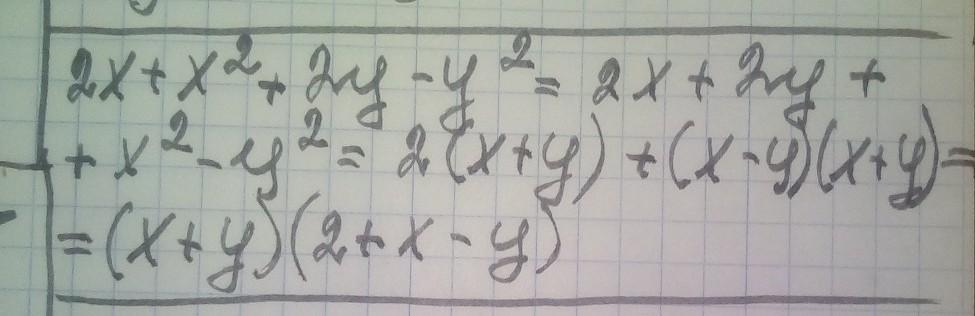 2x + x² + 2y - y² = 2x + 2y +
+ x² - y² = 2(x+y) + (x-y)(x+y) =
= (x+y)(2+x-y)